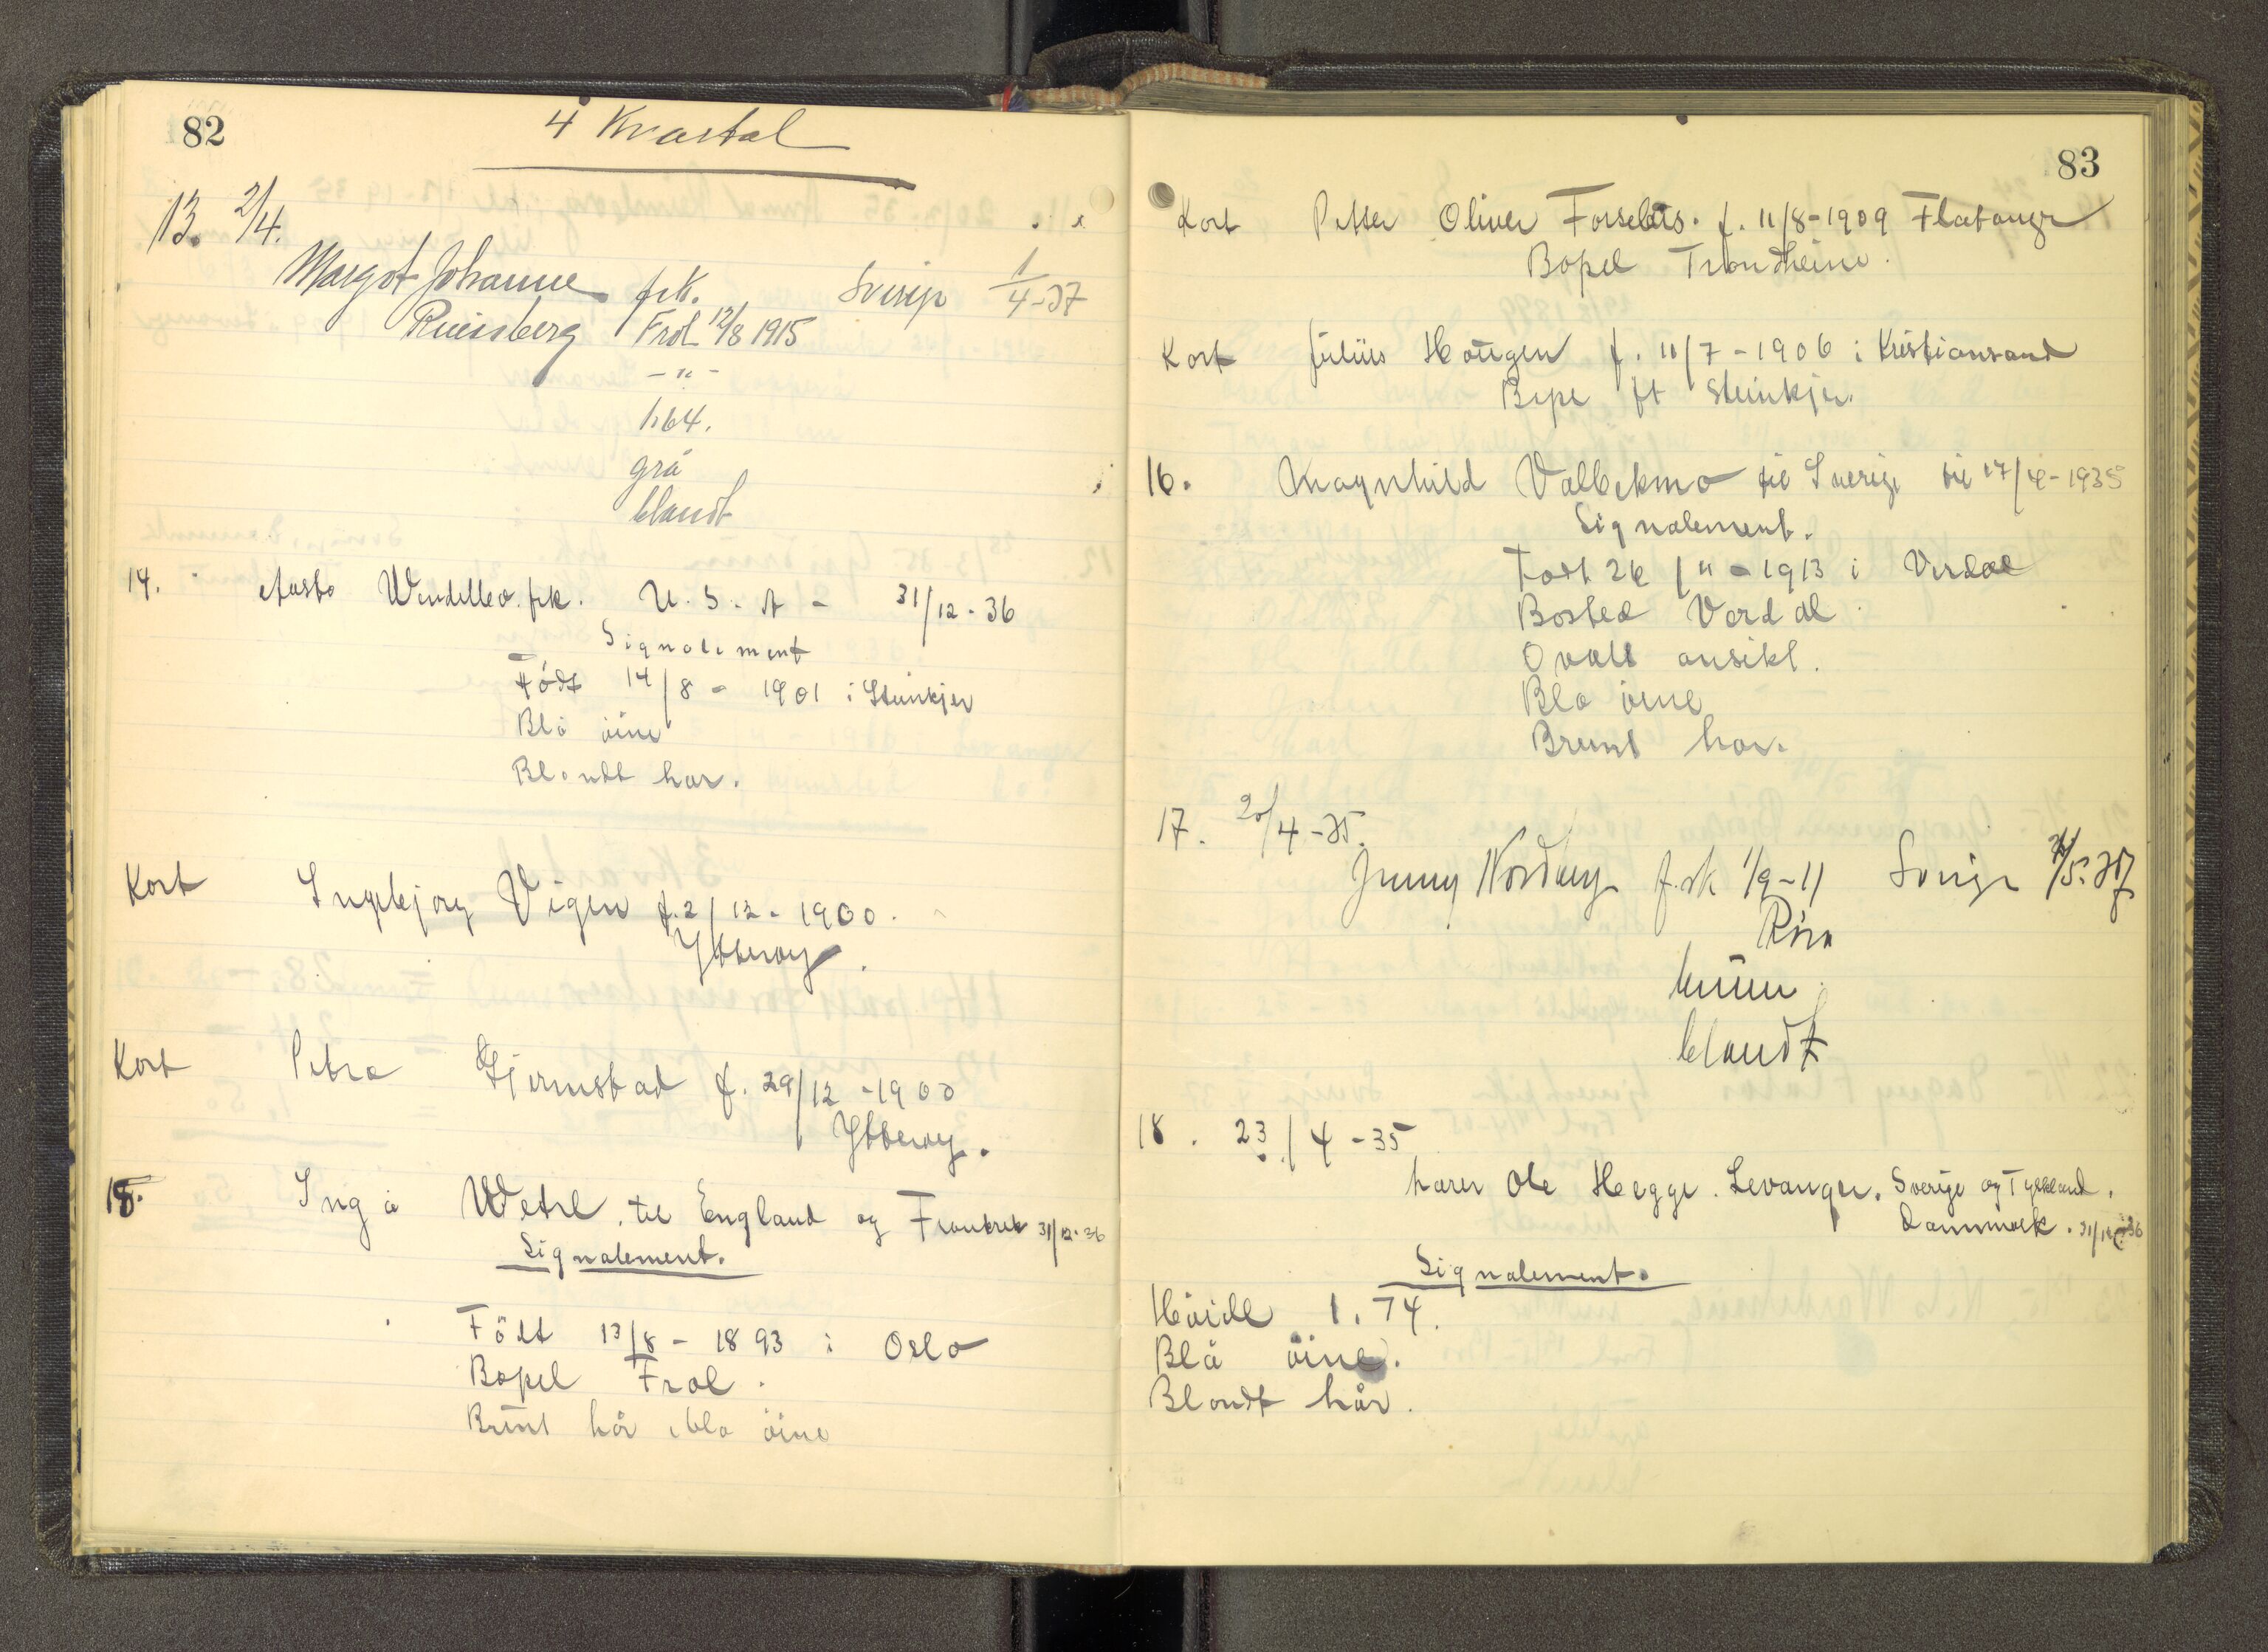 82
4 Kvartal
13. 2/4.
Margot Johanne frk. Sverige 1/4-37
Rinnsberg Frol 12/8 1915
- " -
1.64.
grå
blondt
14. Aasta Wendelbo. frk. U. S. A - 31/12-36
Signalement
Födt 14/8 - 1901 i Steinkjer
Blå öine
Blondt har.
Kort Ingebjorg Vigen f. 2/12 - 1900.
Ytteroy.
Kort Petra Gjermstad f. 29/12 - 1900
Ytteroy.
15. Inga Wetre, til England og Frankrik 31/12-36
Signalement.
Födt 13/8 - 1893 i Oslo
Bopel Frol.
Brunt hår, bla öine
83
Kort Petter Oliver Forselås. f. 11/8-1909 Flatanger
Bopel Trondheim.
Kort Julius Haugen f. 11/7 - 1906 i Kristiansand
Bope ft Steinkjer.
16. Magnhild Valbekmo til Sverige til 17/4-1935
Signalement.
Fodt 26/11 - 1913 i Verdal
Bosted Verdal
Ovalt ansikt.
Bla öine
Brunt har.
17. 20/4-35.
Jenny Nordberg f. rk 1/9-11 Sverige /5.37
Röra
brune
blondt
18. 23/4-35
lærer Ole Hegge. Levanger. Sverige og Tyskland.
Danmark. 31/12-36
Signalement.
Höide 1.74.
Blå öine.
Blondt hår.